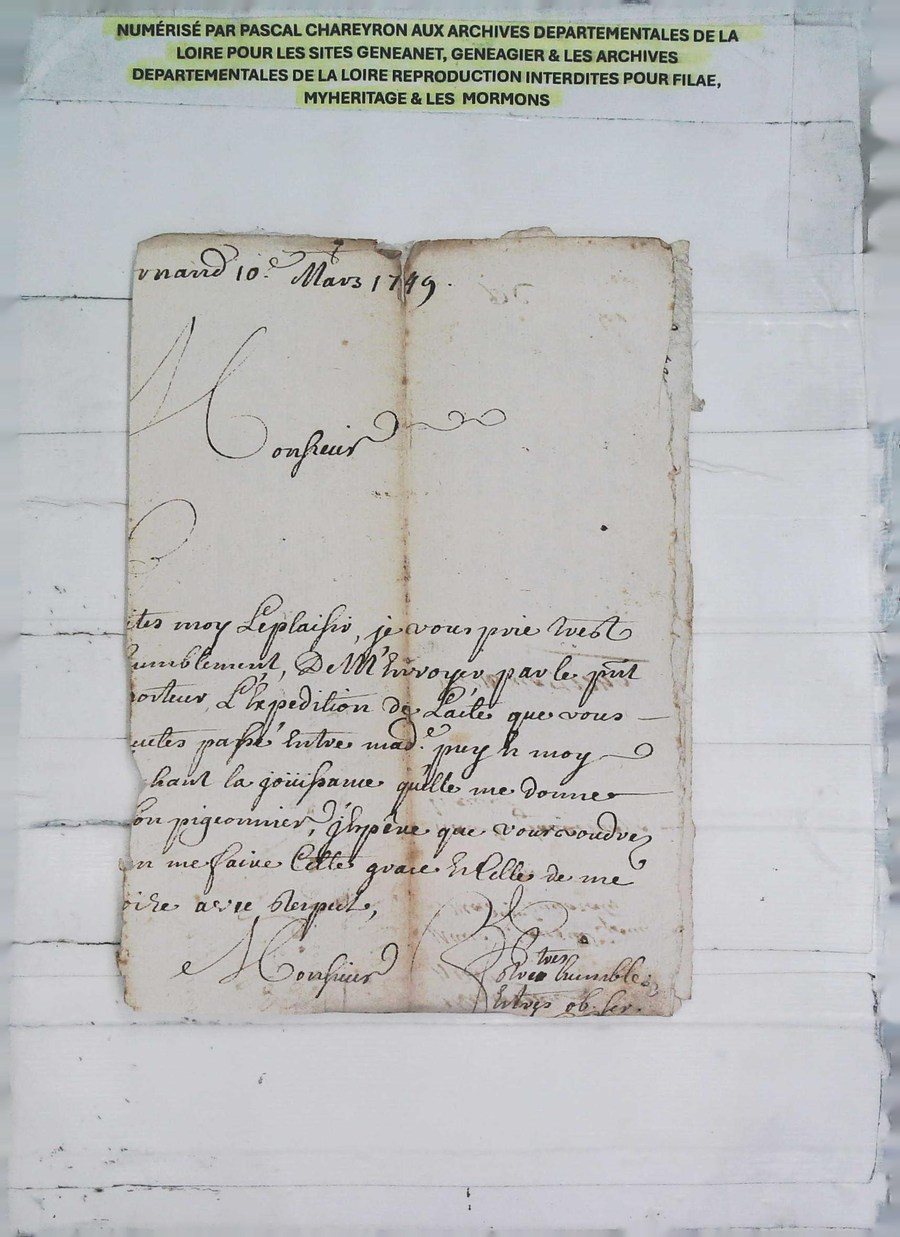 NUMÉRISÉ PAR PASCAL CHAREYRON AUX ARCHIVES DEPARTEMENTALES DE LA
LOIRE POUR LES SITES GENEANET, GENEAGIER & LES ARCHIVES
DEPARTEMENTALES DE LA LOIRE REPRODUCTION INTERDITES POUR FILAE,
MYHERITAGE & LES MORMONS
10.e Mars 1749.
Monsieur
ites moy Le plaisir, je vous prie tres
umblement, De M'Envoyer par le pnt
porteur, L'Expedition de L'acte que vous
avetes passé Entre mad.e puy & moy
chant la jouissance qu'elle me donne
son pigeonnier, j'Espere que vous voudrez
en me faire Cette grace Et Celle de me
oire avec Respect,
Monsieur
Votre tres humble
Et tres ob. ser.